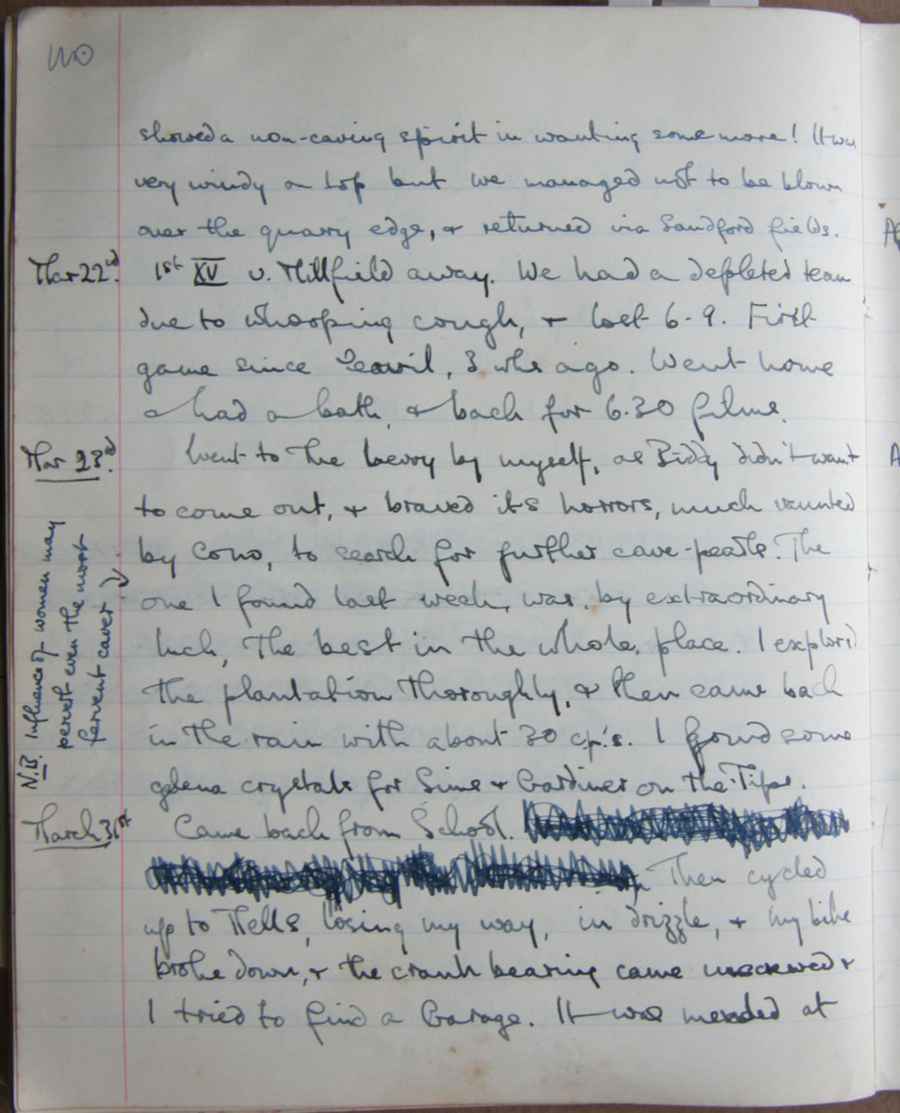 110
showed a non-caving spirit in wanting some more! It was
very windy on top but we managed not to be blown
over the quarry edge, & returned via Sandford fields.
Mar 22nd. 1st XV v. Millfield away. We had a depleted team
due to whooping cough, & lost 6-9. First
game since Yeovil, 3 wks ago. Went home
& had a bath, & back for 6.30 films.
Mar 23rd. Went to the levvy by myself, as Biddy didn't want
to come out, & braved its horrors, much vaunted
by Cono, to search for further cave-pearls. The
one I found last week, was, by extraordinary
luck, the best in the whole place. I explored
the plantation thoroughly, & then came back
in the rain with about 30 c.p.'s. I found some
galena crystals for Sime & Gardiner on the Tips.
N.B. Influence of women may
pervert even the most
fervent caver
March 31st Came back from School.
Then cycled
up to Mells, losing my way, in drizzle, & my bike
broke down, & the crank bearing came unscrewed &
I tried to find a Garage. It was mended at